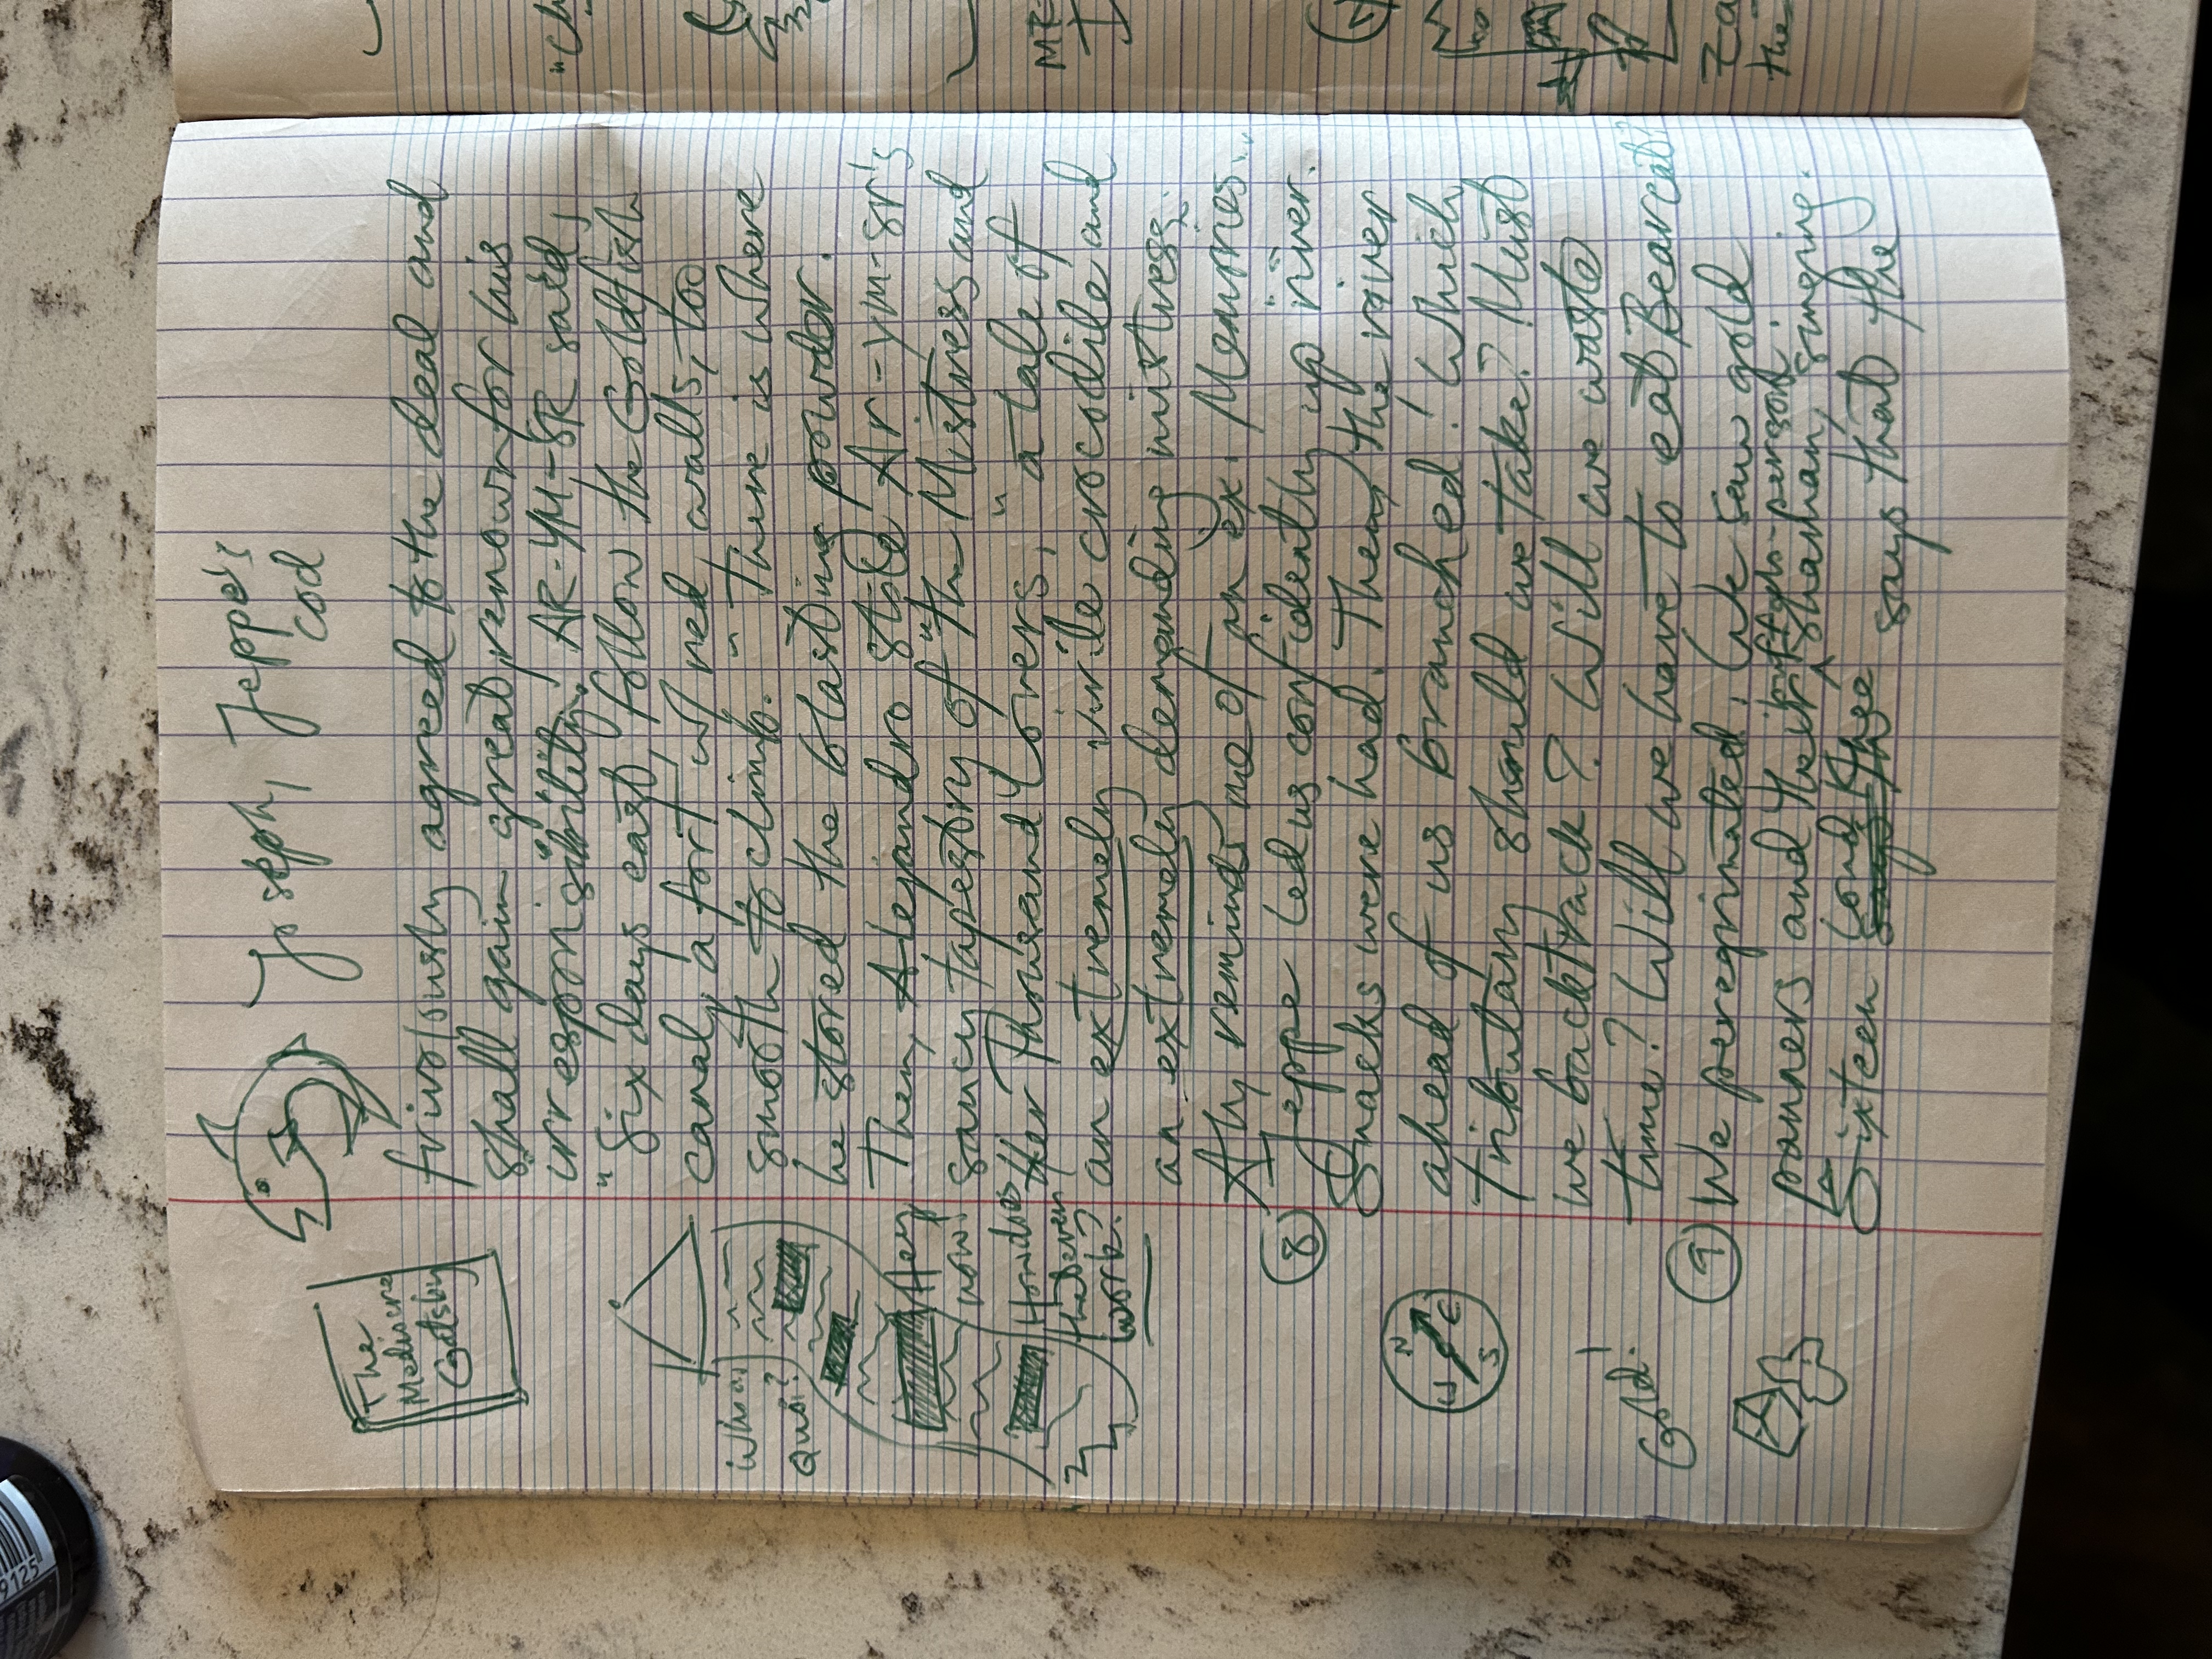 Joseph, Jeppe's
cod
The
Mediocre
Gatsby
frivolously agreed to the deal and
shall gain great renown for his
irresponsibility. AR-YM-SR said,
"Six days east, follow the Goldfish
canal, a fort w/ red walls, too
smooth to climb." There is where
he stored the blasting powder.
Then, Alejandro stole Ar-ym-sr's
saucy tapestry of "the Mistress and
Her Thousand Lovers," a tale of
an extremely virile crocodile and
an extremely demanding mistress.
Aty reminds me of an ex. Memories...
Whoa!
Quoi?
Hey
now!
Homidios
the Seven
work.
8
Jeppe led us confidently up river.
Snacks were had. Then, the river
ahead of us branched! Which
tributary should we take? Must
we backtrack? Will we waste
time? Will we have to eat Bearcat?
N
E
S
W
9
We peregrinated. We saw gold
panners and their shaman, singing.
loftgh-person
Sixteen Cond Kyze says that the
Gold!
"Ch
MT
Za
the
9125